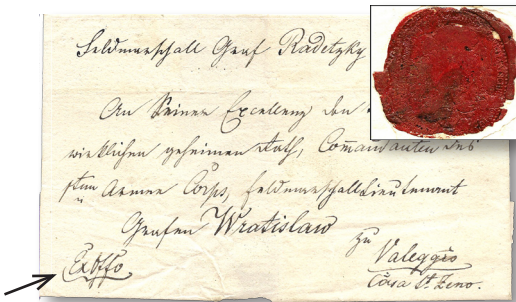 Feldmarschall Graf Radetzky
An Seiner Excellenz den
wirklichen geheimen Rath, Com̄andanten des
Armee Corps, Feldmarschallieutenant
Grafen Wratislaw
zu
Valeggio
Casa St. Zeno.
Ex Offo